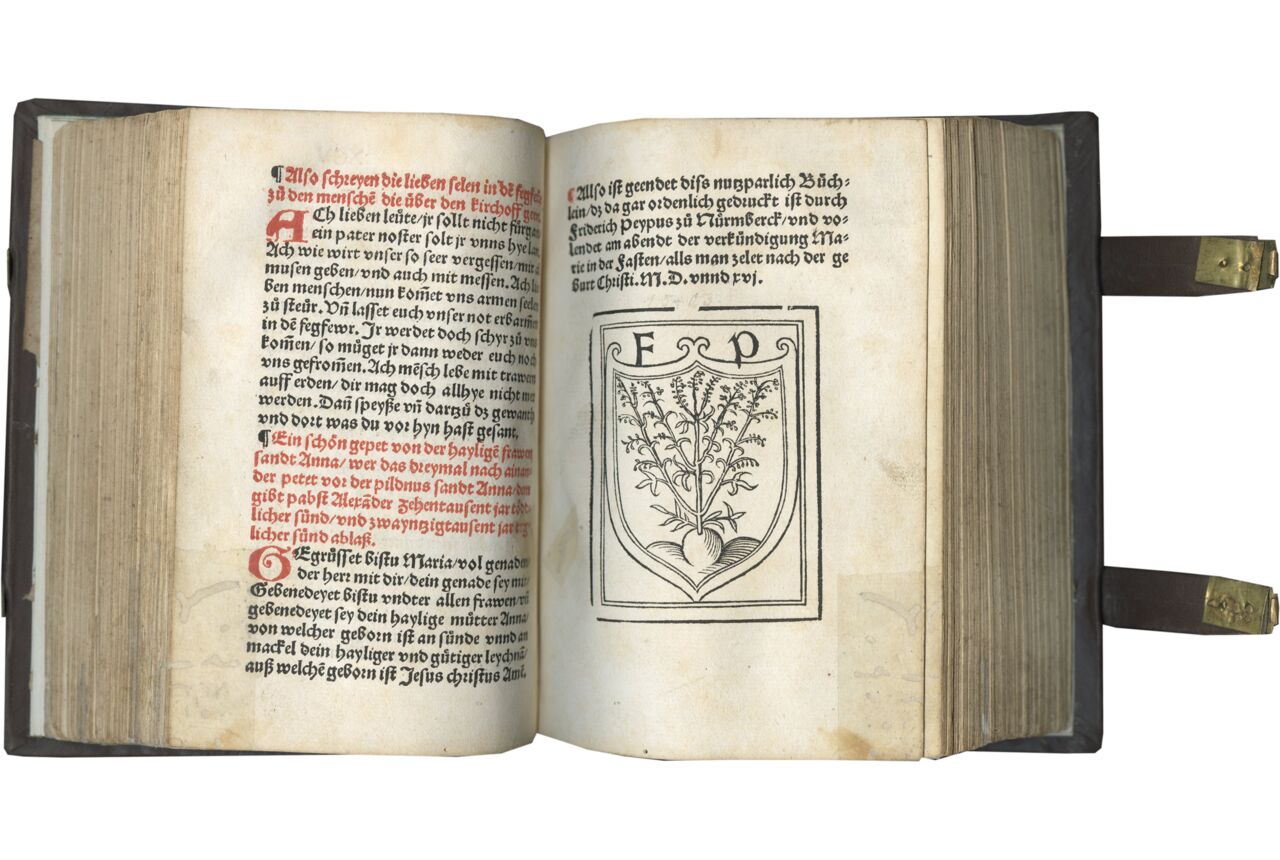 ¶ Also schreyen die lieben selen in dē
zů den menschē die über den kirchoff
ACh lieben leüte/jr sollt nicht
ein pater noster solt jr vnns hye
Ach wie wirt vnser so seer vergessen/mit
musen geben/vnd auch mit messen. Ach
ben menschen/nun kom̄et vns armen seelen
zů steür. Vn̄ lasset euch vnser not erbarm̄en
in dē fegfewr. Jr werdet doch schyr zů vns
kom̄en/so můget jr dann weder euch noch
vns gefrom̄en. Ach mēsch lebe mit trawern
auff erden/dir mag doch allhye nicht mer
werden. Dan̄ speyße vn̄ dartzů dz gewanth
vnd dort was du vor hyn hast gesant.
¶ Ein schön gepet von der hayligē frawen
sandt Anna/wer das dreymal nach ainan-
der petet vor der pildnus sandt Anna/dem
gibt pabst Alexāder zehentausent jar tödt-
licher sünd/vnd zwayntzigtausent jar teg-
licher sünd ablaß.
GEgrüsset bistu Maria/vol genaden
der herr mit dir/dein genade sey mit
Gebenedeyet bistu vndter allen frawen/vn̄
gebenedeyet sey dein haylige můtter Anna/
von welcher geborn ist an sünde vnnd an
mackel dein hayliger vnd gůtiger leychnā/
auß welchē geborn ist Jesus christus Amē.
¶ Allso ist geendet diss nutzparlich Büch-
lein/dz da gar ordenlich gedruckt ist durch
Friderich Peypus zů Nürmberck/vnd vo-
lendet am abendt der verkündigung Ma-
rie in der Fasten/alls man zelet nach der ge
burt Christi. M. D. vnnd xvj.
F P